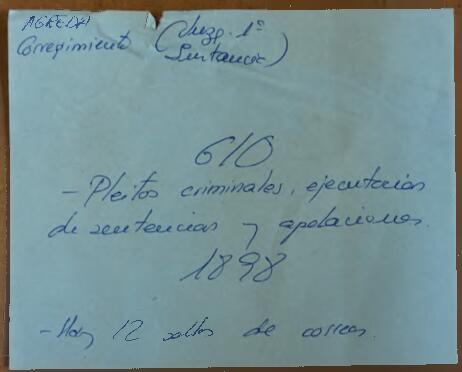 AGREDA
Corregimiento (Juzg. 1ª
Instancia)
610
- Pleitos criminales, ejecutorias
de sentencias y apelaciones.
1898
- Hay 12 sellos de correos.